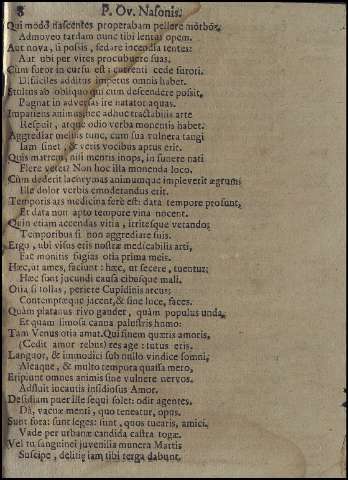 8 P. Ov. Nasonis.
Qui modò nascentes properabam pellere morbos,
Admoveo tardam nunc tibi lentus opem.
Aut nova, si possis, sedare incendia tentes:
Aut ubi per vires procubuere suas.
Cum furor in cursu est: currenti cede furori.
Difficiles aditus impetus omnis habet.
Stultus ab obliquo qui cum descendere possit,
Pugnat in adversas ire natator aquas.
Impatiens animus, nec adhuc tractabilis arte
Respuit, atque odio verba monentis habet.
Aggrediar melius tunc, cum sua vulnera tangi
Iam sinet, & veris vocibus aptus erit.
Quis matrem, nisi mentis inops, in funere nati
Flere vetet? Non hoc illa monenda loco.
Cum dederit lacrymas animumque impleverit ægrum:
Ille dolor verbis emoderandus erit.
Temporis ars medicina ferè est: data tempore prosunt,
Et data non apto tempore vina nocent.
Quin etiam accendas vitia, irritesque vetando;
Temporibus si non aggrediare suis.
Ergo, ubi visus eris nostræ medicabilis arti,
Fac monitis fugias otia prima meis.
Hæc, ut ames, faciunt: hæc, ut fecere, tuentur;
Hæc sunt jucundi causa cibusque mali.
Otia si tollas, periere Cupidinis arcus;
Contemptæque jacent, & sine luce, faces.
Quàm platanus rivo gaudet, quàm populus unda,
Et quàm limosa canna palustris humo:
Tam Venus otia amat. Qui finem quæris amoris,
(Cedit amor rebus) res age: tutus eris.
Languor, & immodici sub nullo vindice somni,
Aleaque, & multo tempora quassa mero,
Eripiunt omnes animis sine vulnere nervos.
Adfluit incautis insidiosus Amor.
Desidiam puer ille sequi solet: odit agentes.
Da, vacuæ menti, quo teneatur, opus.
Sunt fora: sunt leges: sunt, quos tuearis, amici.
Vade per urbanæ candida castra togæ.
Vel tu sanguinei juvenilia munera Martis
Suscipe, delitiæ iam tibi terga dabunt.